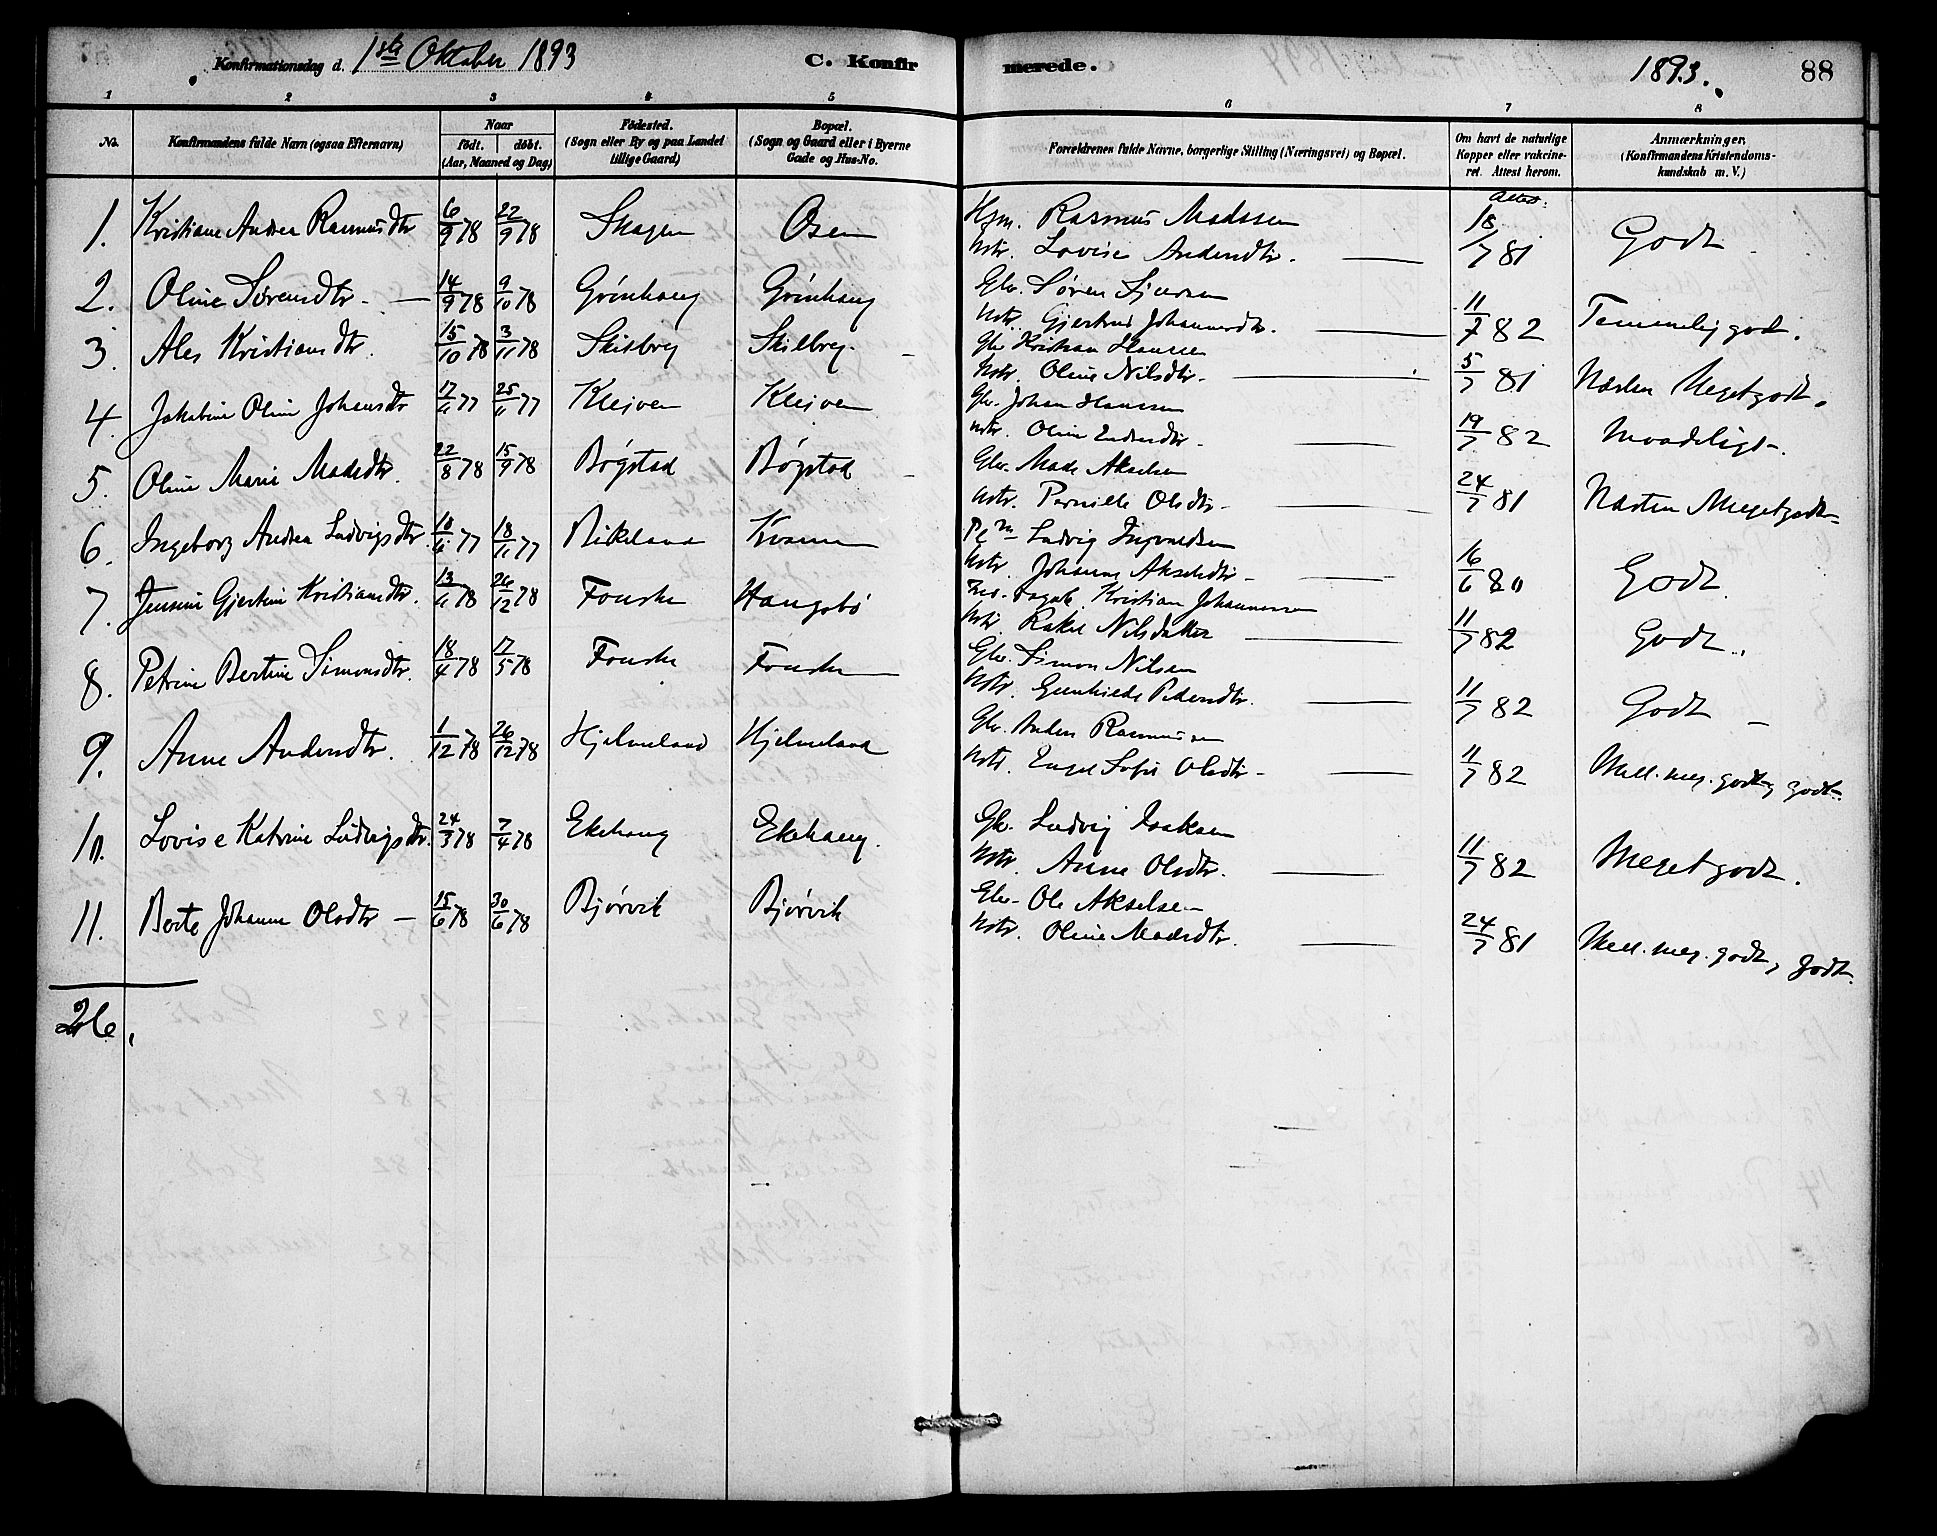 Konfirmationsdag d. 1ste Oktober 1893 C. Konfirmerede. 1893. 88
1 2 3 4 5 6 7 8
No. Konfirmandens fulde Navn (ogsaa Efternavn) Naar født. døbt. (Aar, Maaned og Dag) Fødested. (Sogn eller By og paa Landet tillige Gaard) Bopæl. (Sogn og Gaard eller i Byerne Gade og Hus-No. Forældrenes fulde Navne, borgerlige Stilling (Næringsvei) og Bopæl. Om havt de naturlige Kopper eller vakcineret. Attest herom. Anmærkninger. (Konfirmandens Kristendomskundskab m. V.)
Attest.
1. Kristiane Andrea Rasmusdtr 6/9 78 22/9 78 Skagen Osen Hsm. Rasmus Madssen 18/7 81 Godt
Hstr. Lovise Andersdtr. —
2. Oline Sørensdtr. — 14/9 78 9/10 78 Grönhaug Grönhaug Gbr. Søren Sjursen 11/7 82 Temmelig godt.
Hstr. Gjertrud Johannesdtr. —
3. Ales Kristiansdtr. 15/10 78 3/11 78 Skilbrei Skilbrei Gbr Kristian Hanssen 5/7 81 Næsten Meget godt.
Hstr. Oline Nilsdtr. —
4. Jakobine Oline Johansdtr 17/11 77 25/11 77 Kleiven Kleiven Gbr. Johan Hanssen 19/7 82 Maadeligt.
Hstr. Oline Endresdtr. —
5. Oline Marie Madsdtr. 22/8 78 15/9 78 Bögstad Bögstad Gbr. Mads Akselsen 24/7 81 Næsten Meget godt
Hstr. Pernille Olsdtr. —
6. Ingeborg Andrea Ludvigsdtr 10/11 77 18/11 77 Birkeland Kvamm Pl.m Ludvig Ingvaldsen 16/6 80 Godt.
Hstr. Johanne Akselsdtr —
7. Jensine Gjertine Kristiansdtr. 13/11 78 26/12 78 Fonske Haugsbö Kristian Johannessen 11/7 82 Godt.
Hstr. Rakel Nilsdatter —
8. Petrine Bertine Simonsdtr. 18/4 78 17/5 78 Fonske Fonske Gbr. Simon Nilsen 11/7 82 Godt —
Hstr. Gunhilde Pedersdtr. —
9. Anne Andersdtr. 1/12 78 26/12 78 Hjelmeland Hjelmeland Gbr. Anders Rasmussen 11/7 82 Mell. meg. godt og godt.
Hstr. Engel Sofie Olsdtr —
10. Lovise Katrine Ludvigsdtr. 24/3 78 7/4 78 Ekehaug Ekehaug. Gbr. Ludvig Isaksen 11/7 82 Meget godt.
Hstr. Anne Olsdtr. —
11. Berte Johanne Olsdtr — 15/6 78 30/6 78 Bjørvik Bjørvik Gbr. Ole Akselsen 24/7 81 Mell. meg. godt, godt.
Hstr. Oline Madsdtr. —
26.